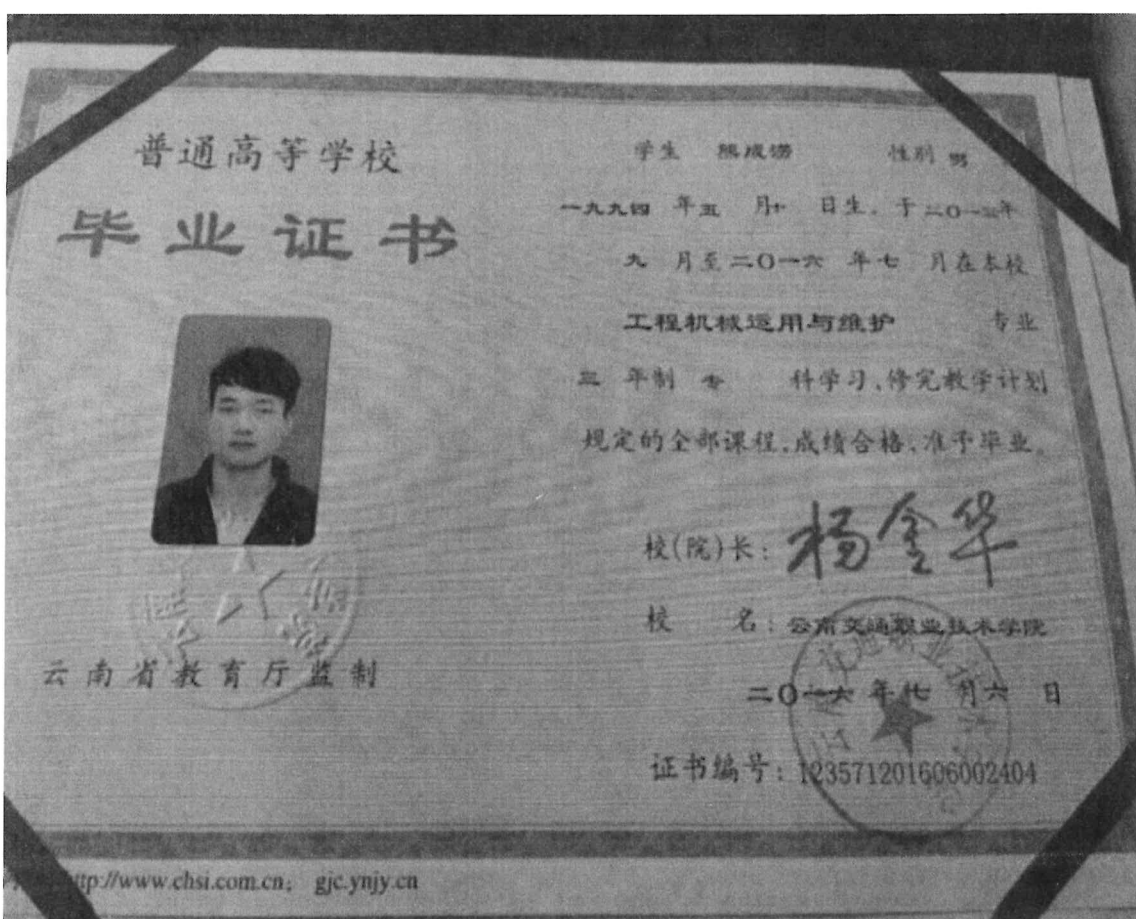 普通高等学校
毕业证书
云南省教育厅监制
学生 熊成 性别 男
一九九四 年五 月十 日生,于二〇一三年
九 月至二〇一六 年七 月在本校
工程机械运用与维护 专业
三 年制 专 科学习,修完教学计划
规定的全部课程,成绩合格,准予毕业。
校(院)长: 杨金华
校 名: 云南交通职业技术学院
二〇一六 年七 月六 日
证书编号: 123571201606002404
http://www.chsi.com.cn; gjc.ynjy.cn